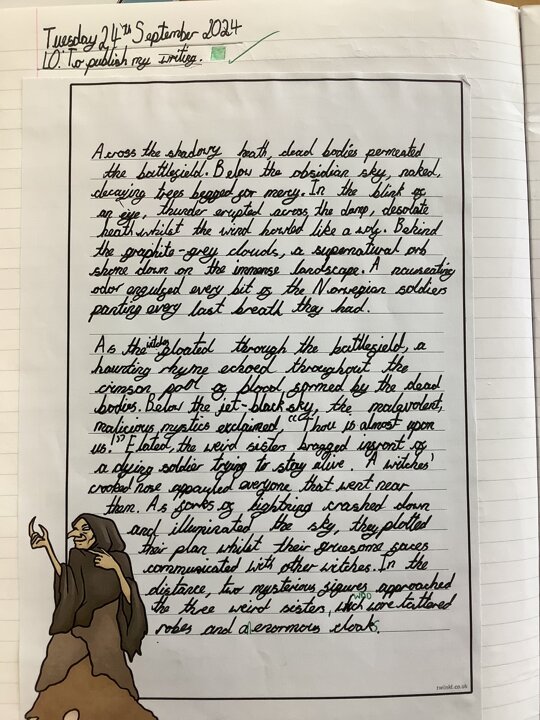 Tuesday 24th September 2024
LO: To publish my writing.
Across the shadowy heath, dead bodies permeated
the battlefield. Below the obsidian sky, naked,
decaying trees begged for mercy. In the blink of
an eye, thunder erupted across the damp, desolate
heath whilst the wind howled like a wolf. Behind
the graphite-grey clouds, a supernatural orb
shone down on the immense landscape. A nauseating
odor engulfed every bit of the Norwegian soldiers
panting every last breath they had.
As the witches floated through the battlefield, a
haunting rhyme echoed throughout the
crimson pool of blood formed by the dead
bodies. Below the jet-black sky, the malevolent,
malicious mystics exclaimed, "Thou is almost upon
us!" Elated, the weird sisters bragged infront of
a dying soldier trying to stay alive. A witches'
crooked nose appauled everyone that went near
them. As forks of lightning crashed down
and illuminated the sky, they plotted
their plan whilst their gruesome faces
communicated with other witches. In the
distance, two mysterious figures approached
the three weird sisters, who wore tattered
robes and enormous cloaks.
twinkl.co.uk